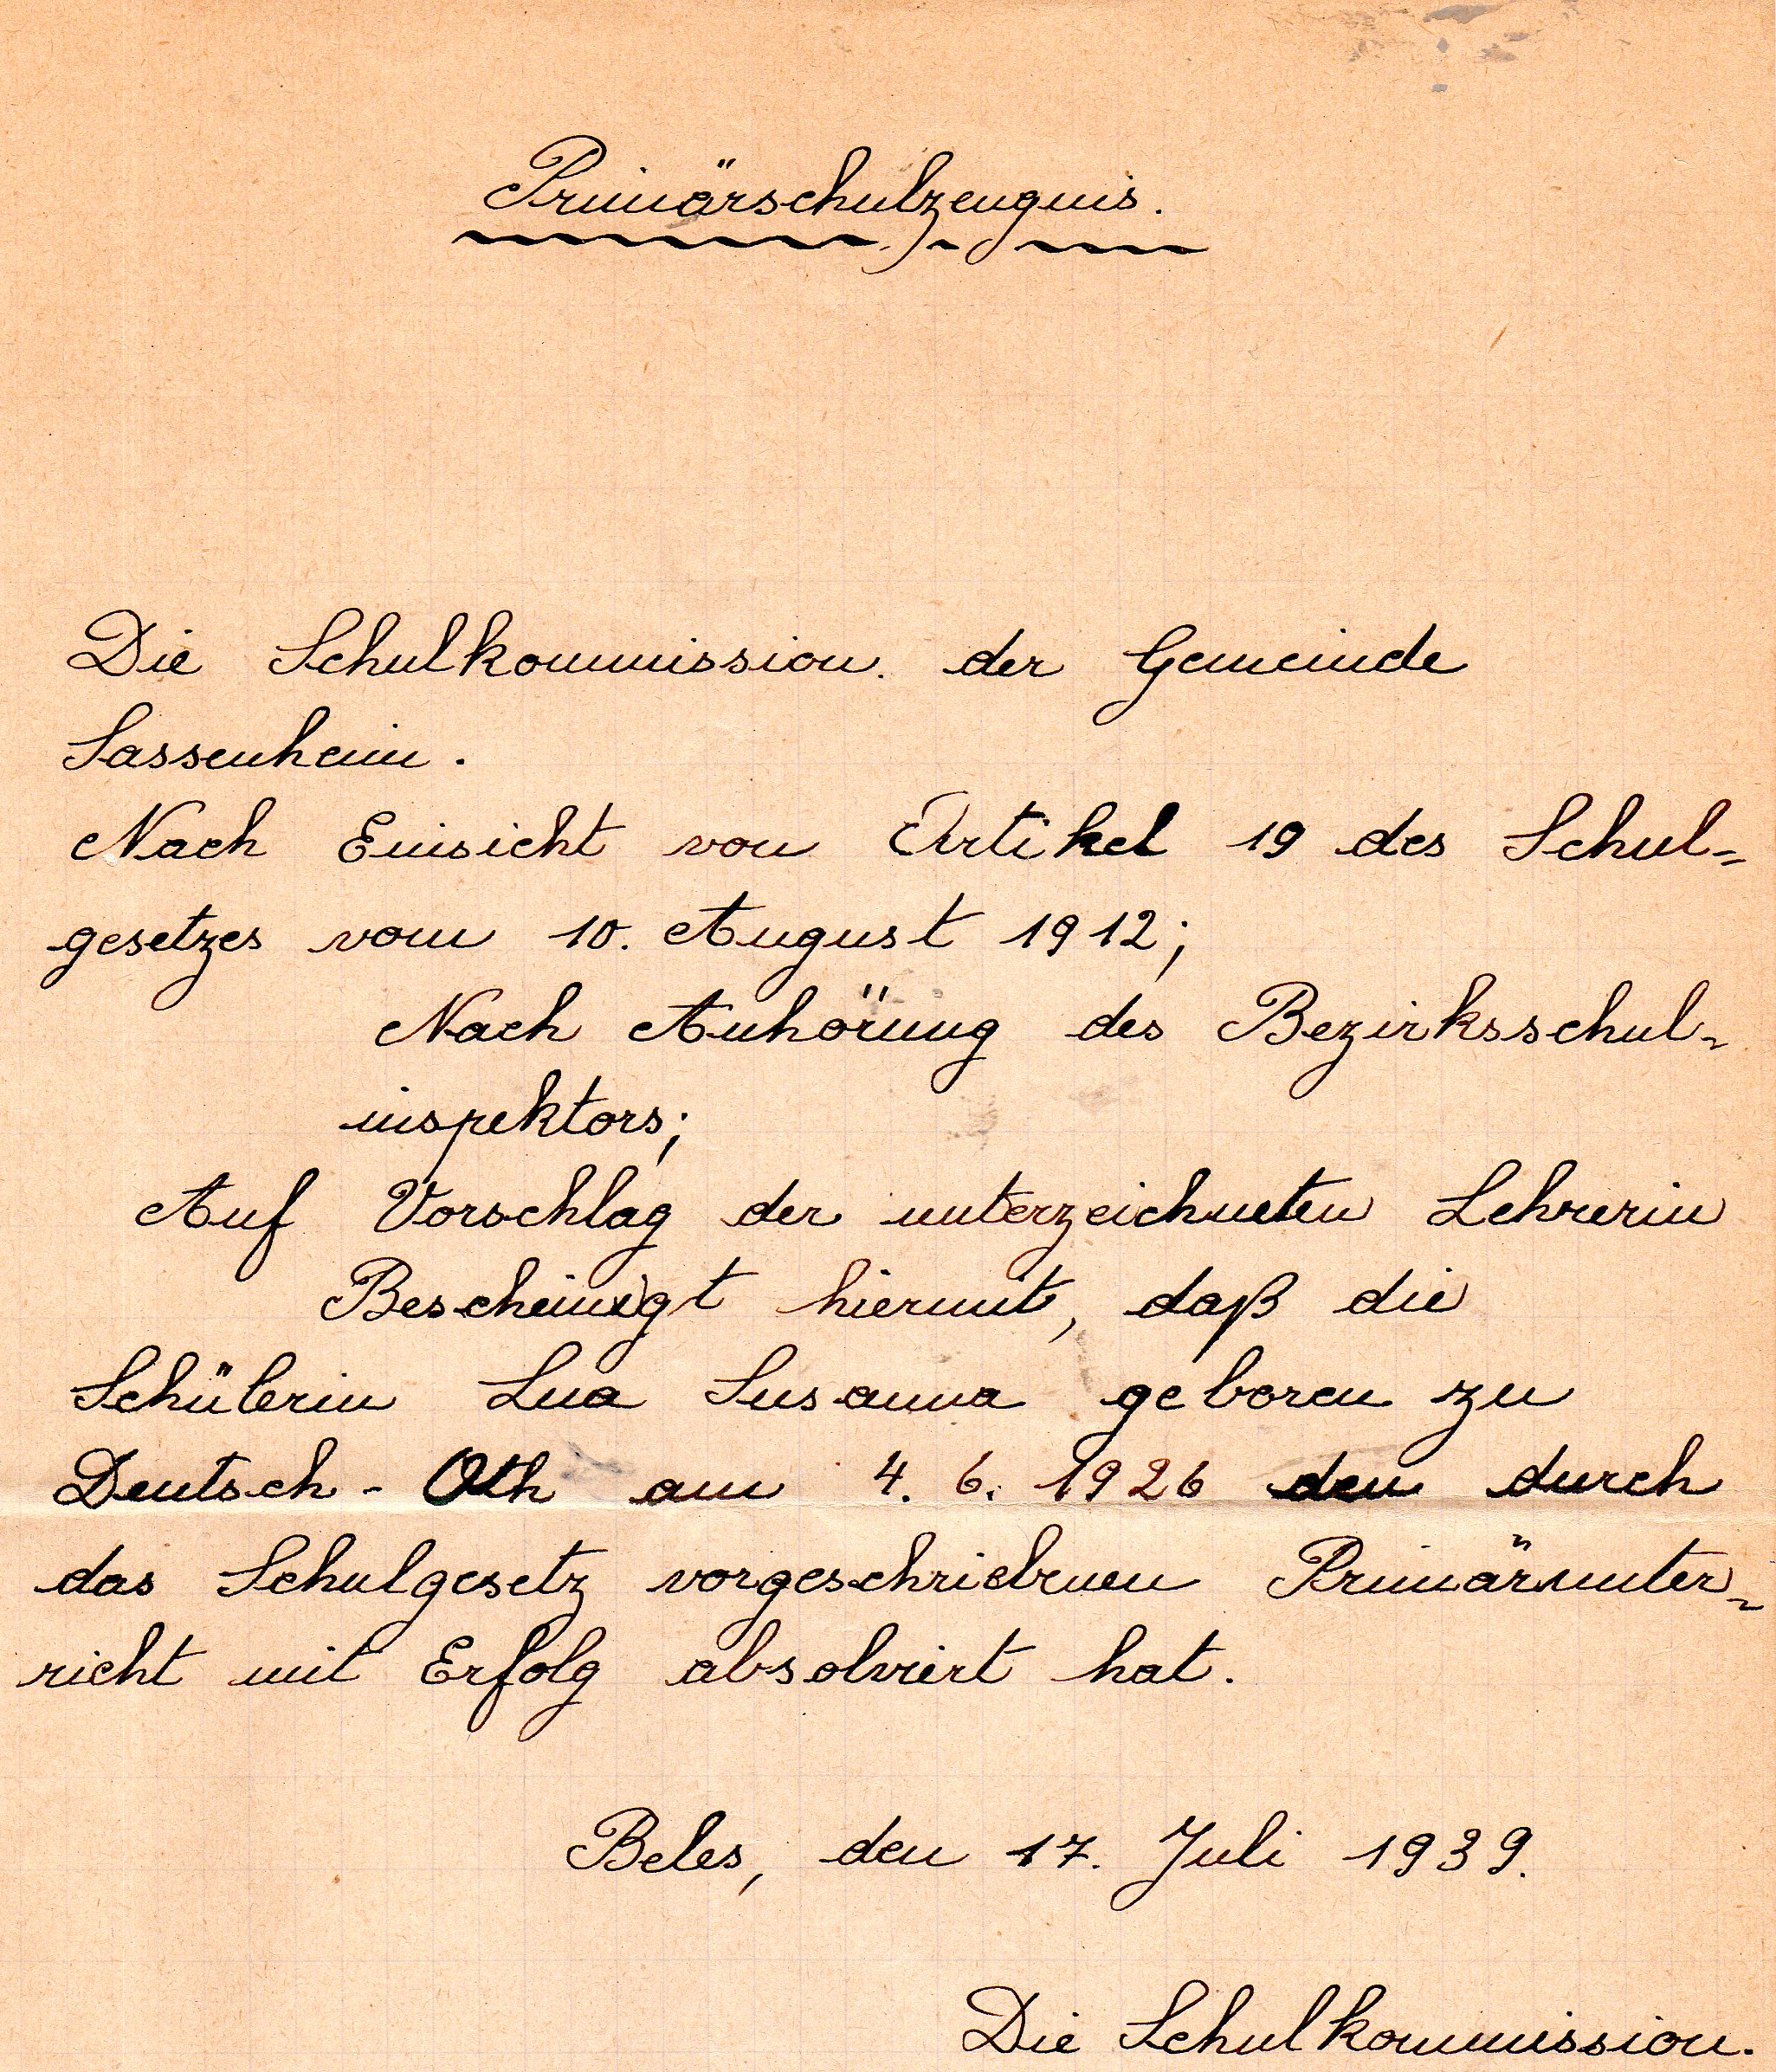 Primärschulzeugnis.
Die Schulkommission. der Gemeinde
Sassenheim.
Nach Einsicht von Artikel 19 des Schul=
gesetzes vom 10. August 1912;
Nach Anhörung des Bezirksschul=
inspektors;
Auf Vorschlag der unterzeichneten Lehrerin
Bescheinigt hiermit, daß die
Schülerin Lua Susanna geboren zu
Deutsch-Oth am 4. 6. 1926 den durch
das Schulgesetz vorgeschriebenen Primärunter=
richt mit Erfolg absolviert hat.
Beles, den 17. Juli 1939.
Die Schulkommission.